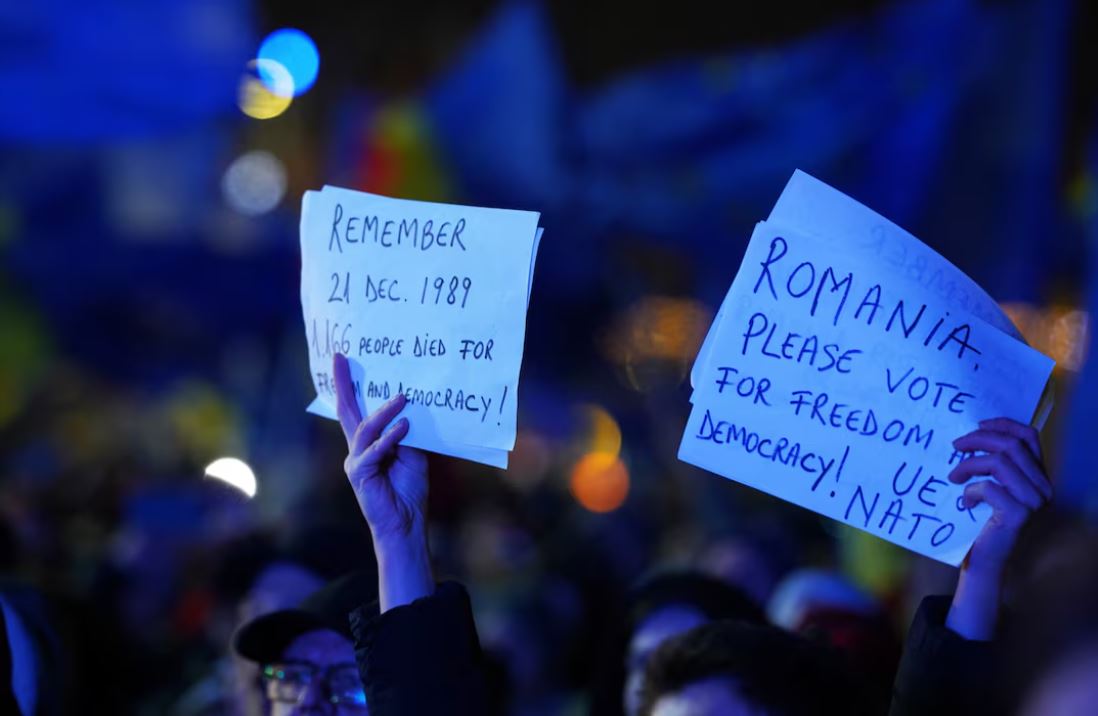 REMEMBER
21 DEC. 1989
1.166 PEOPLE DIED FOR
AND DEMOCRACY!
ROMANIA.
PLEASE VOTE
FOR FREEDOM
DEMOCRACY! UE &
NATO